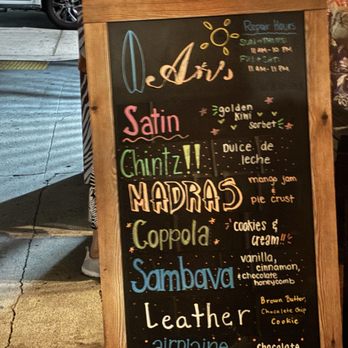 Regular Hours
SUN - THURS
11 AM - 10 PM
FRI + SAT
11 AM - 11 PM
Satin
golden
kiwi
sorbet
Chintz!!
Dulce de
leche
MADRAS
mango jam
&
pie crust
Coppola
cookies &
cream!!
Sambava
vanilla,
cinnamon,
+chocolate
honeycomb
Leather
Brown Butter,
Chocolate Chip
Cookie
airplane
Chocolate